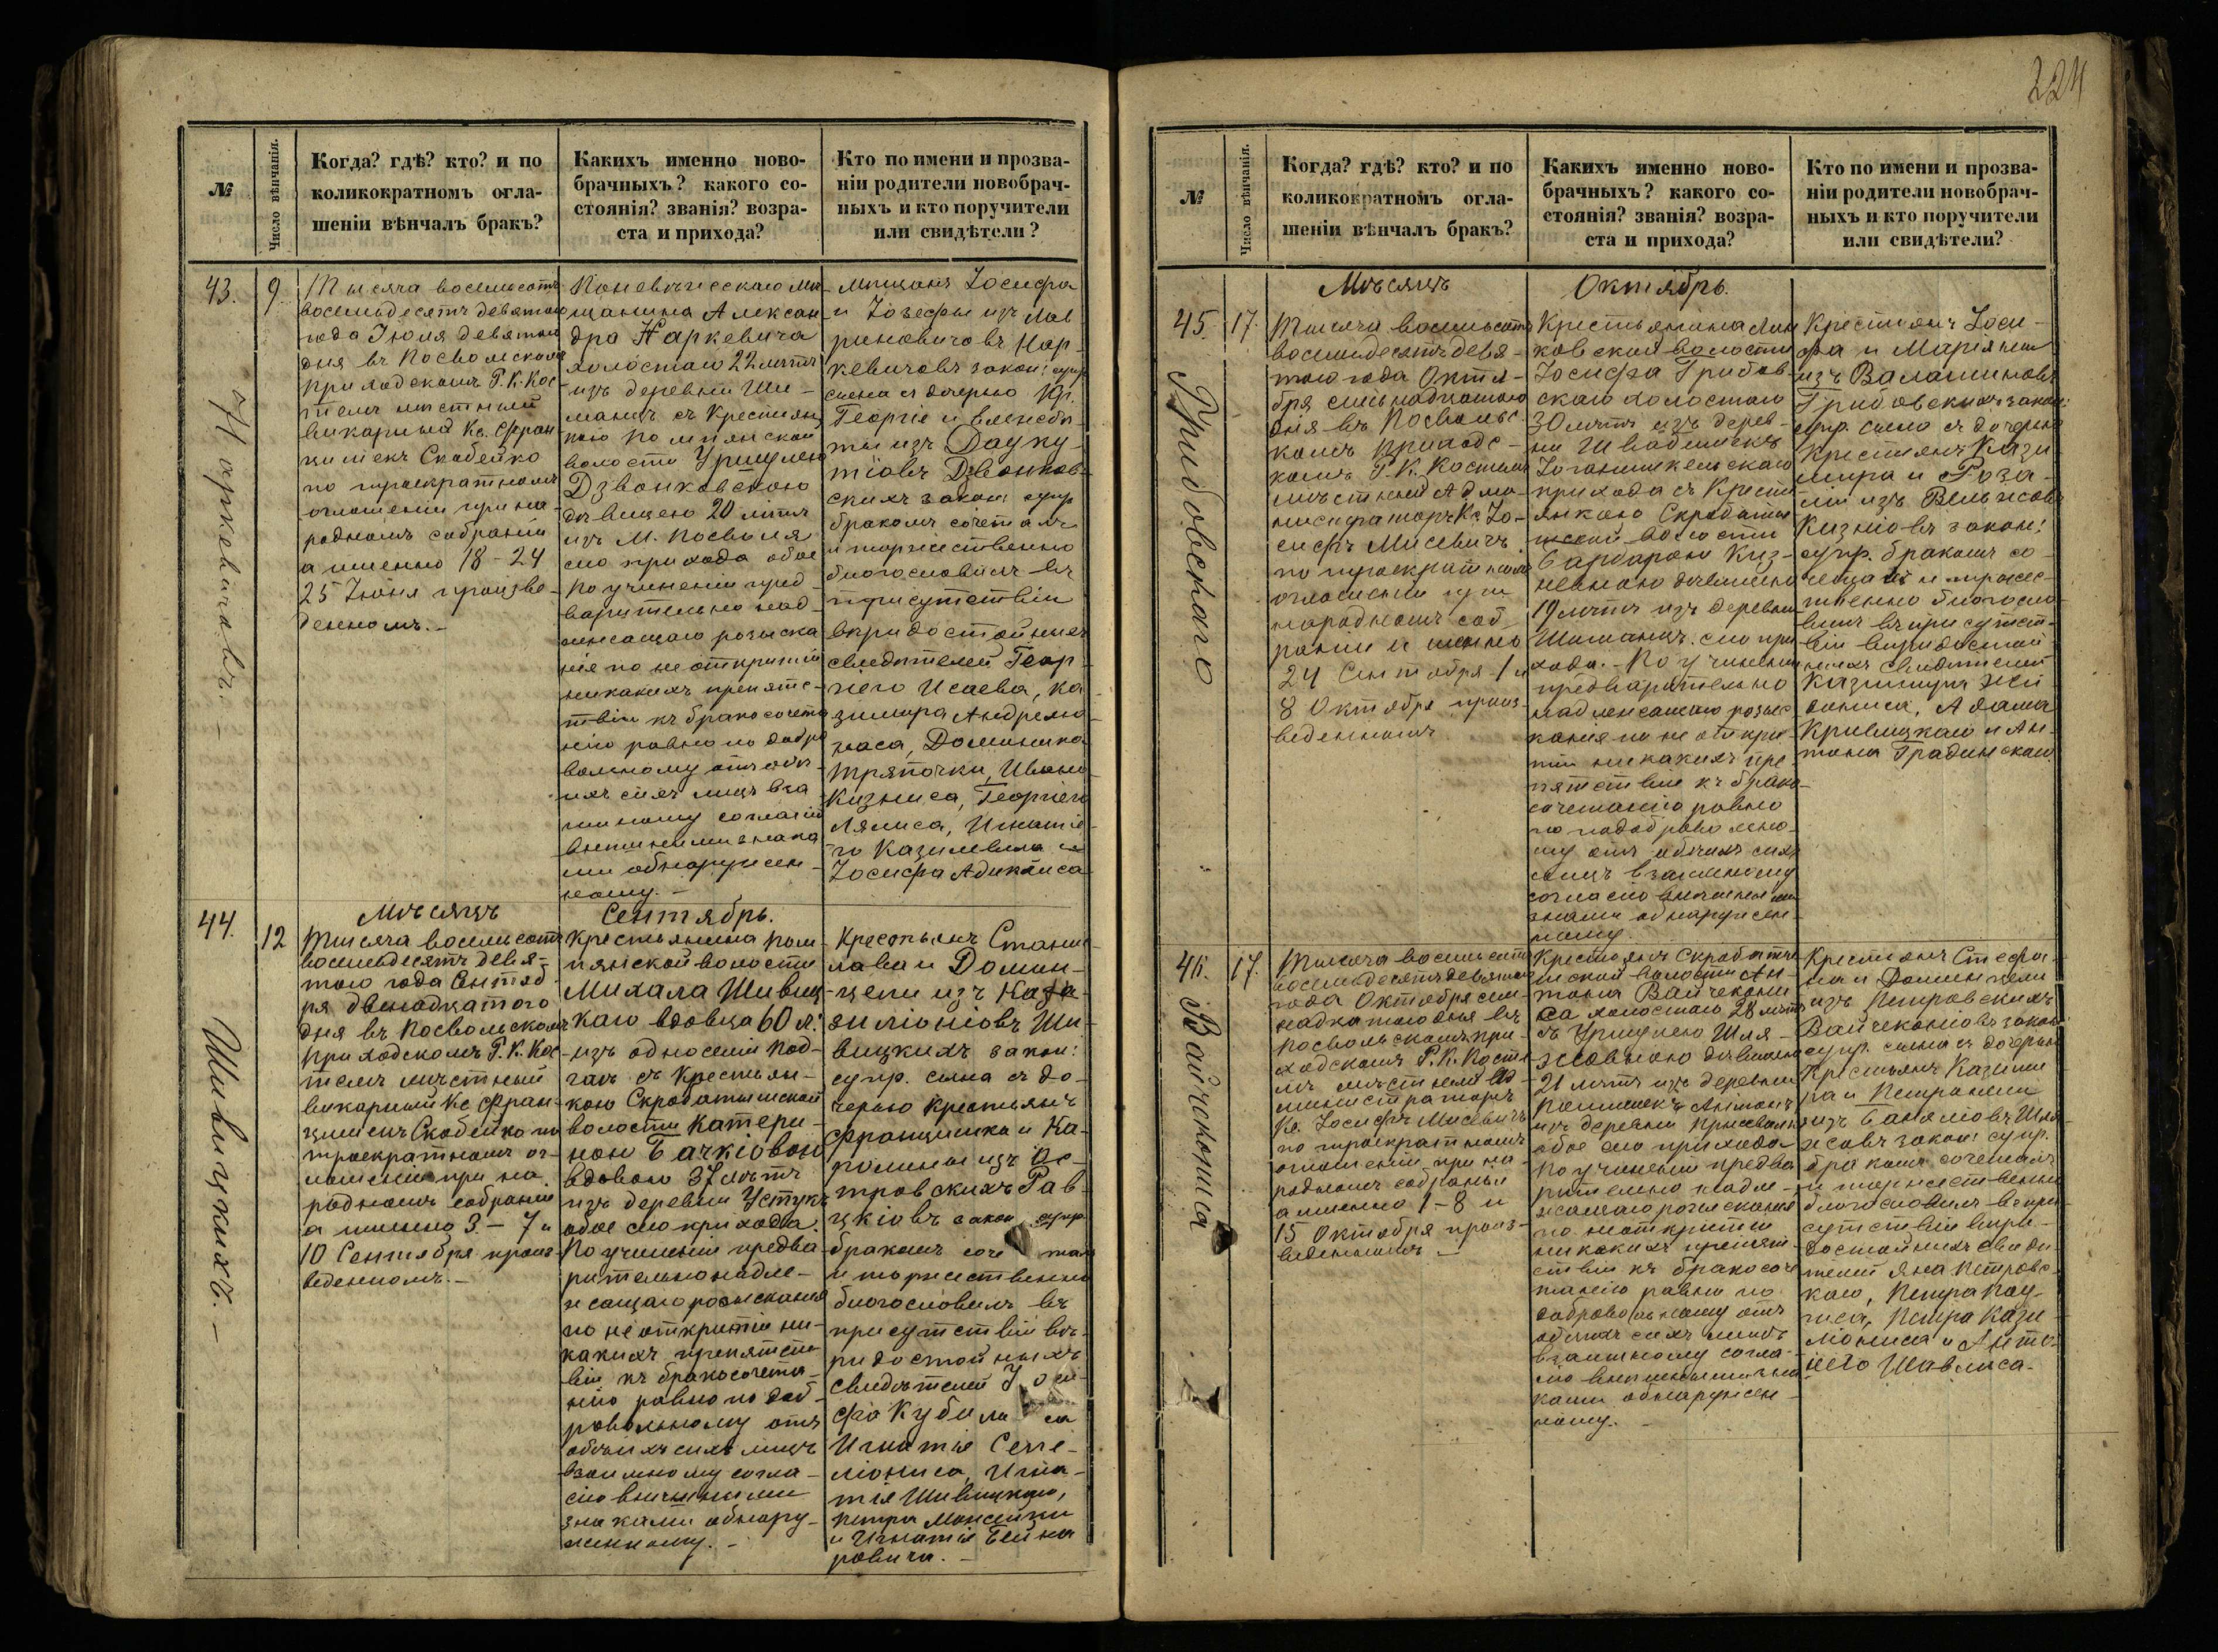 224
№
Число вѣнчанія.
Когда? гдѣ? кто? и по
коликократномъ огла-
шеніи вѣнчалъ бракъ?
Какихъ именно ново-
брачныхъ? какого со-
стоянія? званія? возра-
ста и прихода?
Кто по имени и прозва-
ніи родители новобрач-
ныхъ и кто поручители
или свидѣтели?
43.
9
Тысяча восемьсотъ
восемьдесятъ девятаго
года Іюля девятаго
дня въ Посвольскомъ
приходскомъ Р. К. Кос-
телѣ мѣстный
викарный Кс. Фран
цишекъ Скабейко
по троекратномъ
оглашеніи при на-
родномъ собраніи
а именно 18-24
25 Іюня произве-
денномъ.-
Поневѣжескаго мѣ
щанина Алексан
дра Наркевича
холостаго 22 лѣтъ
изъ деревни Ши-
манцъ съ крестьян
кою Помпянской
волости Уршулею
Дзвонковскою
дѣвицею 20 лѣтъ
изъ М. Посволя
сего прихода обое
по учиненіи пред
варительно над-
лежащаго розыска
нія по не открытіи
никакихъ препятс-
твій къ бракосочета
нію равно по добро
вольному отъ обѣ-
ихъ сихъ лицъ вза
имному согласію
внешними знака
ми обнаружен-
ному.-
мѣщанъ Іосифа
и Іозефы изъ Лав
риновичовъ Нар-
кевичовъ закон: супр
сына съ дочерью Кр.
Георгіе и Елисабѣ
ты изъ Дауку-
тіовъ Дзвонков-
скихъ закон: супр
бракомъ сочеталъ
и торжественно
благословилъ въ
присутствіи
вѣридостойныхъ
свидѣтелей Геор-
гіего Исаева, Ка
зимира Андрею
наса, Доминика
Тряпочки, Ивана
Кизниса, Георгіего
Лялиса, Игнатіе-
го Казилевича и
Іосифа Адикониса
Наркевичовъ.-
44.
12
Мѣсяцъ
Сентябрь.
Тысяча восемьсотъ
восемьдесятъ девя-
таго года Сентяб
ря двенадцатого
дня въ Посвольскомъ
приходскомъ Р. К. Кос
телѣ мѣстный
викарный Кс Фран-
цишекъ Скабейко по
троекратномъ ог-
лашеніи при на
родномъ собраніи
а именно 3 - 7 и
10 Сентября произ-
веденномъ.-
Крестьянина Пом-
пянской волости
Михала Шивиц
каго вдовца 60 л:
изъ односелій Под-
гаи съ крестьян-
кою Скробатышской
волости Катери-
ною Бачкіовою
вдовою 37 лѣтъ
изъ деревни Устукъ
обое сего прихода.
По учиненіи предва
рительно надле-
жащаго розысканія
по не открытіи ни-
какихъ препятст
вій къ бракосочета
нію равно по доб-
ровольному отъ
обѣихъ сихъ лицъ
взаимному согла-
сію внешними
знаками обнару-
женному.-
Крестьянъ Станис
лава и Домин-
цели изъ Каза-
зиліоніовъ Ши-
вицкихъ закон:
супр. сына съ до-
черью крестьянъ
Францишка и Ка-
ролины изъ Пе-
тровскихъ Рав-
цкіовъ закон. супр
бракомъ соче тал
и торжественно
благословилъ въ
присутствіи вѣ-
ридостойныхъ
свидѣтелей Іоси
фа Кубили са
Игнатія Серге-
ліониса, Игна-
тія Шивицкаго,
Петра Монсейки
и Игнатія Бейна
ровича.-
Шивицкихъ.-
№
Число вѣнчанія.
Когда? гдѣ? кто? и по
коликократномъ огла-
шеніи вѣнчалъ бракъ?
Какихъ именно ново-
брачныхъ? какого со-
стоянія? званія? возра-
ста и прихода?
Кто по имени и прозва-
ніи родители новобрач-
ныхъ и кто поручители
или свидѣтели?
Мѣсяцъ
Октябрь.
45.
17.
Тысяча восемьсотъ
восемьдесятъ девя-
таго года Октя-
бря семьнадцатаго
дня въ Посвольс
комъ приходс-
комъ Р. К. Костелѣ
мѣстный Адми-
нистраторъ Кс. Іо-
сифъ Мисевичъ
по троекратномъ
оглашеніи при
народномъ соб
раніи а именно
24 Сентября 1 и
8 Октября произ
веденномъ
Крестьянина Лин
ковской волости
Іосифа Грибов-
скаго холостаго
30 лѣтъ изъ дерев-
ни Швабишекъ
Іоганишкельскаго
прихода съ крестья
янкою Скробаты
шской волости
Барбарою Киз-
невною дѣвицею
19 лѣтъ изъ деревни
Шиманцъ сего при
хода.- По учиненіи
предварительно
надлежащаго розыс
канія по не откры
тіи никакихъ пре
пятствій къ брако
сочетанію равно
по добровольно-
му отъ обѣихъ сихъ
лицъ взаимному
согласію внешними
знами обнаружен-
ному.
Крестьянъ Іоси-
фа и Маріянны
изъ Валаминовъ
Грибовскихъ закон:
супр. сына съ дочерью
крестьянъ Кази
мира и Роза-
ліи изъ Вельжисовъ
Кизніовъ закон:
супр. бракомъ со-
четалъ и торжес-
твенно благосло-
вилъ въ присутст-
віи виридостой
ныхъ свидѣтелей
Казимира Жей
дониса, Адама
Кривицкаго и Ан-
тона Градинскаго.
Грибовскаго
46.
17.
Тысяча восемьсотъ
восемьдесятъ девятаго
года Октября семь
надцатаго дня въ
Посвольскомъ при-
ходскомъ Р. К. Косте
лѣ мѣстный Ад-
министраторъ
Кс. Іосифъ Мисевичъ
по троекратномъ
оглашеніи при на-
родномъ собраніи
а именно 1-8 и
15 Октября произ-
веденномъ -
Крестьянъ Скробаты
шской волости Ан-
тона Вайчекони
са холостаго 28 лѣтъ
съ Уршулею Шля-
жовною дѣвицею
21 лѣтъ изъ деревни
изъ деревни
обое сего прихода
по учиненіи предва
рительно надле-
жащаго розысканія
по неоткрытіи
никакихъ препят-
ствій къ бракосоче
танію равно по
добровольному отъ
обѣихъ сихъ лицъ
взаимному согла-
сію внешними зна
ками обнаружен-
ному.-
Крестьянъ Стефа-
на и Доминцели
изъ Петровскихъ
Вайчеконіовъ закон:
супр. сына съ дочерью
крестьянъ Казими
ра и Петронели
изъ
закон: супр.
бракомъ сочеталъ
и торжественно
благословилъ въ при
сутствіи вири-
достойныхъ свиди
телей Яна Петровс-
каго, Петра Поу-
жиса, Петра Кази
ліониса и Анто-
него Шавлиса.
Вайчекониса